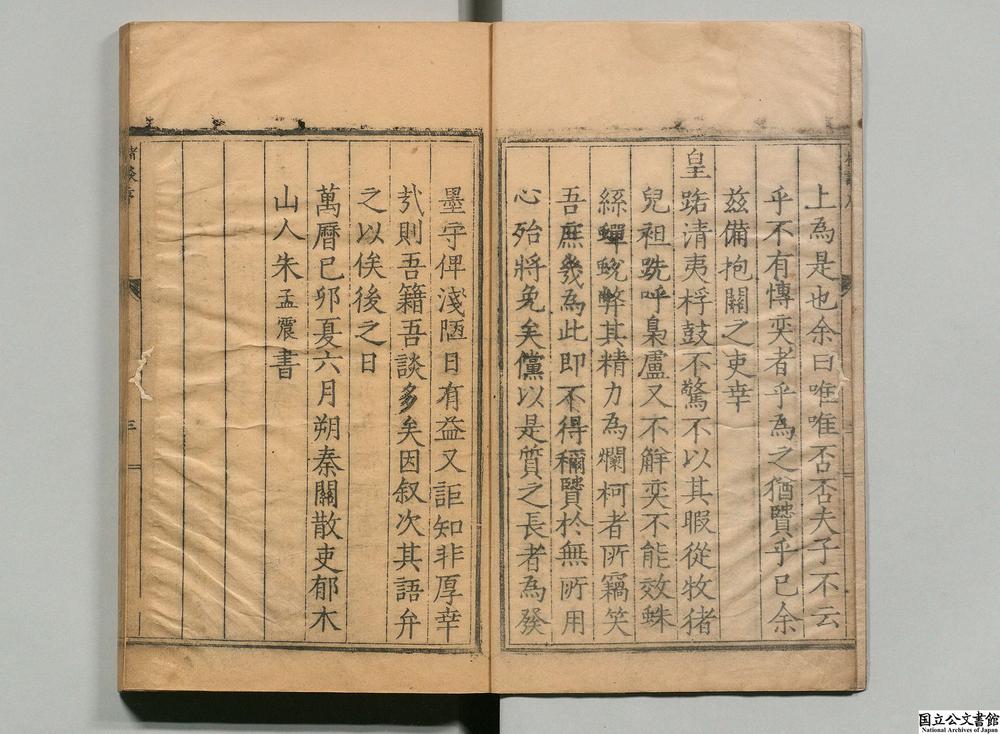 上為是也余曰唯唯否否夫子不云
乎不有愽奕者乎為之猶賢乎已余
茲備抱關之吏幸
皇路清夷桴鼓不驚不以其暇從牧猪
兒袒跣呼梟盧又不解奕不能效蛛
絲蟬蛻弊其精力為爛柯者所竊笑
吾庶幾為此即不得稱賢於無所用
心殆將免矣儻以是質之長者為發
墨守俾淺陋日有益又詎知非厚幸
㢤則吾籍吾談多矣因叙次其語弁
之以俟後之日
萬曆己卯夏六月朔秦關散吏郁木
山人朱孟震書
三
三
国立公文書館
National Archives of Japan